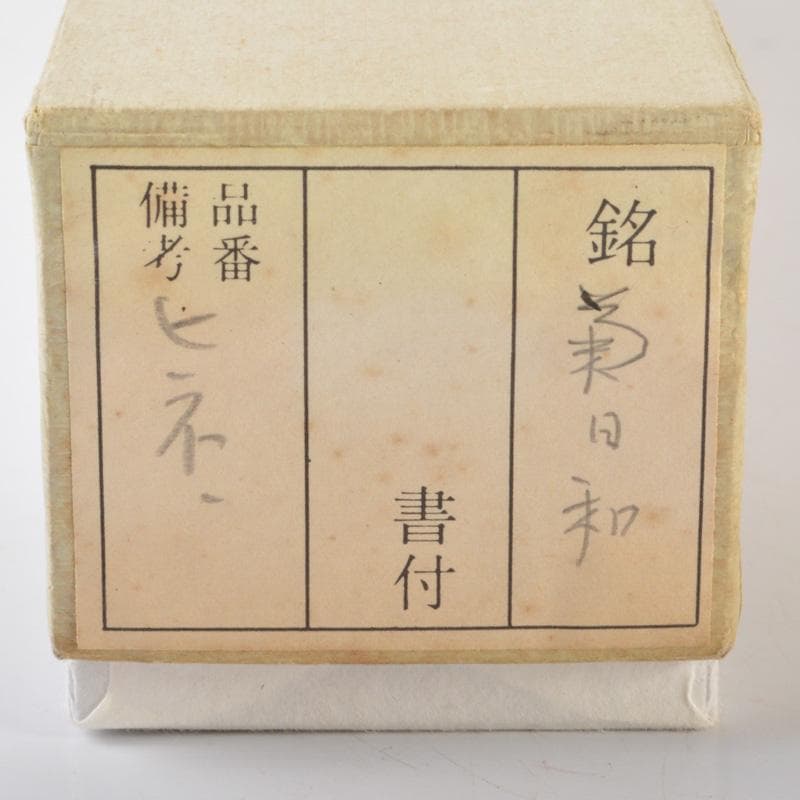 銘 菊日和
書付
品番
備考 ヒネ